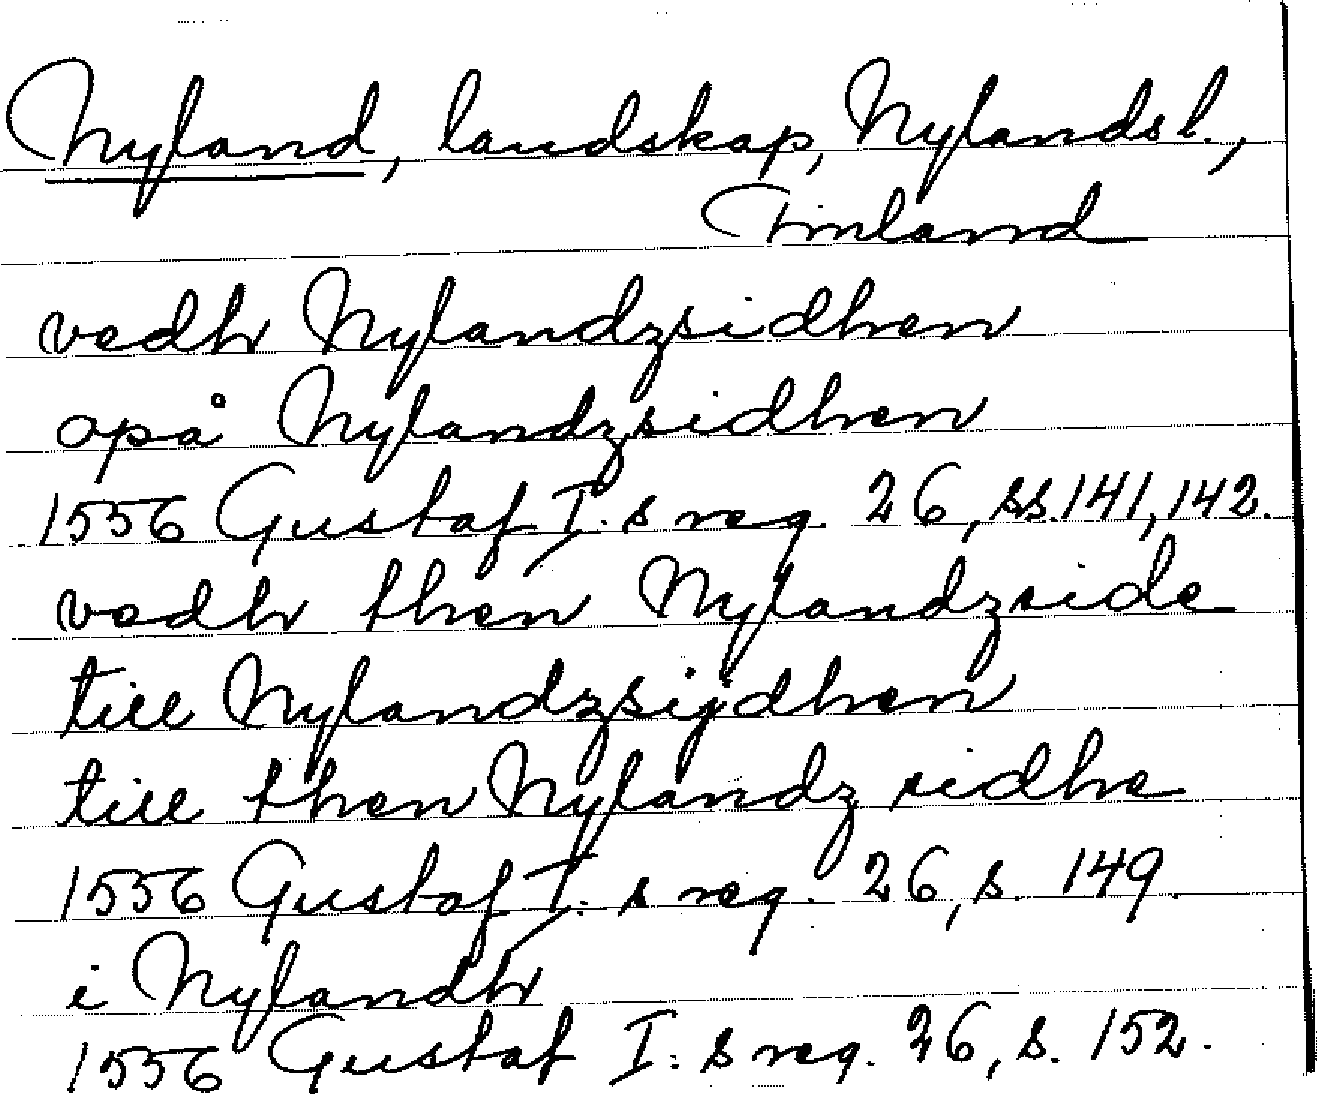 Nyland, landskap, Nylandsl.,
Finland
vedh Nylandzsidhen
opå Nylandzsidhen
1556 Gustaf I:s reg. 26, ss. 141, 142.
vedh then Nylandzside
till Nylandzsijdhen
till then Nylandz sidhe
1556 Gustaf I:s reg. 26, s. 149.
i Nylandh
1556 Gustaf I:s reg. 26, s. 152.